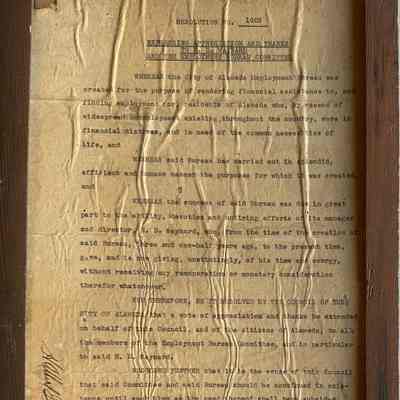 RESOLUTION NO. 1602
EXPRESSING APPRECIATION AND THANKS
TO
EMPLOYMENT BUREAU COMMITTEE
WHEREAS the City of Alameda Employment Bureau was
created for the purpose of rendering financial assistance to, and
finding employment for, residents of Alameda who, by reason of
widespread unemployment existing throughout the country, were in
financial distress, and in need of the common necessities of
life, and
WHEREAS said Bureau has carried out in splendid,
efficient and humane manner the purposes for which it was created,
and
WHEREAS the success of said Bureau was due in great
part to the ability, devotion and untiring efforts of its manager
and director, Maynard, who, from the time of the creation of
said Bureau, three and one-half years ago, to the present time,
gave, and is now giving, unstintingly, of his time and energy,
without receiving any remuneration or monetary consideration
therefor whatsoever.
NOW THEREFORE, BE IT RESOLVED BY THE COUNCIL OF THE
CITY OF ALAMEDA that a vote of appreciation and thanks be extended
on behalf of this Council, and of the citizens of Alameda, to all
the members of the Employment Bureau Committee, and in particular
to said Maynard.
RESOLVED FURTHER that it is the sense of this Council
that said Committee and said Bureau should be continued in exis-
tence until such time as the need thereof shall have subsided